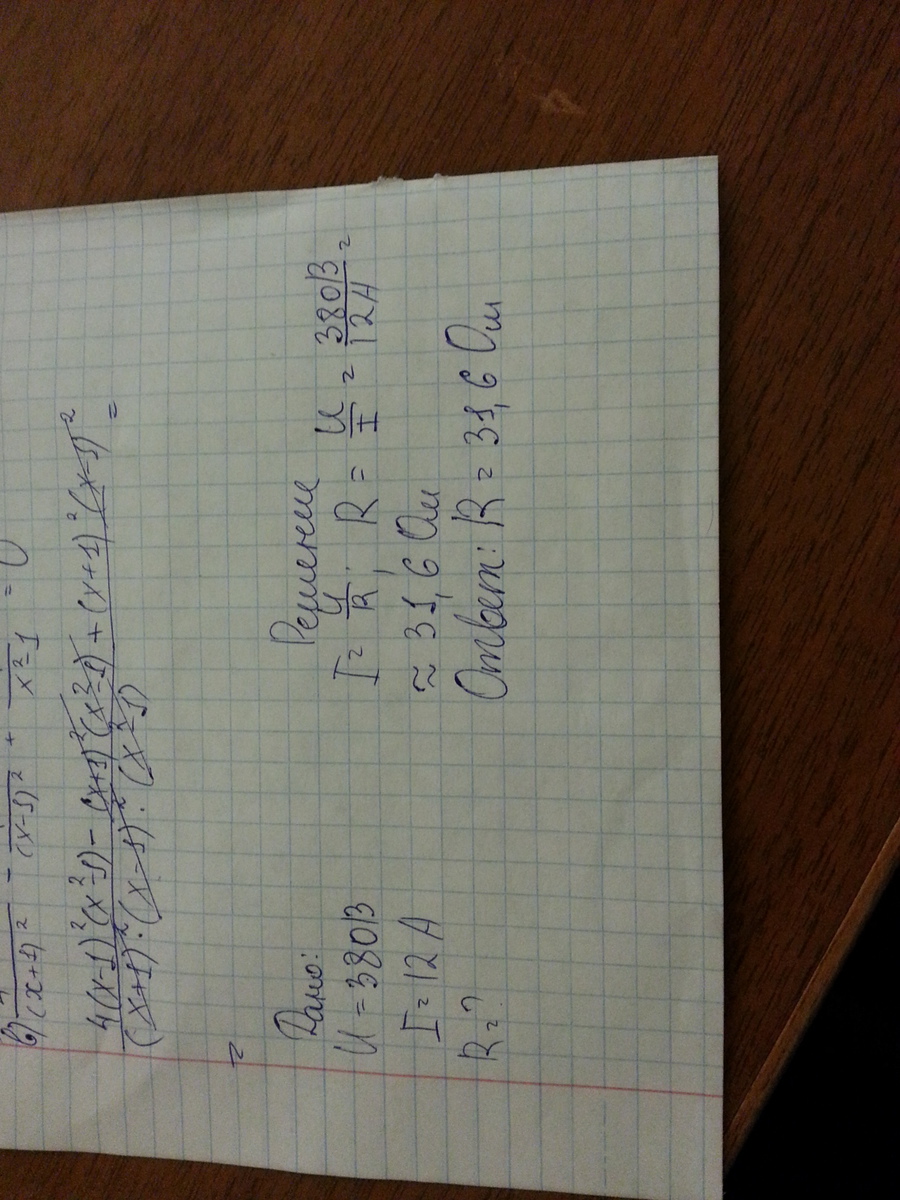 в) 4/(x+1)² − 1/(x−1)² + 1/(x²−1) = 0
(4(x−1)²(x²−1) − (x+1)²(x²−1) + (x+1)²(x−1)²)/((x+1)²·(x−1)²·(x²−1)) =
=
Дано:
U = 380В
I = 12А
R = ?
Решение
I = U/R; R = U/I = 380В/12А =
≈ 31,6 Ом
Ответ: R = 31,6 Ом